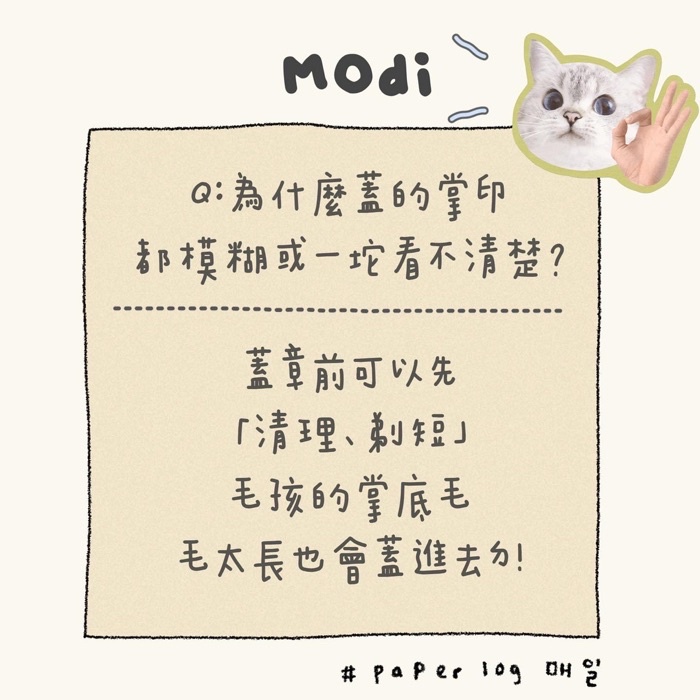 Modi
Q:為什麼蓋的掌印
都模糊或一坨看不清楚?
蓋章前可以先
「清理、剃短」
毛孩的掌底毛
毛太長也會蓋進去ㄉ!
# paper log 매일